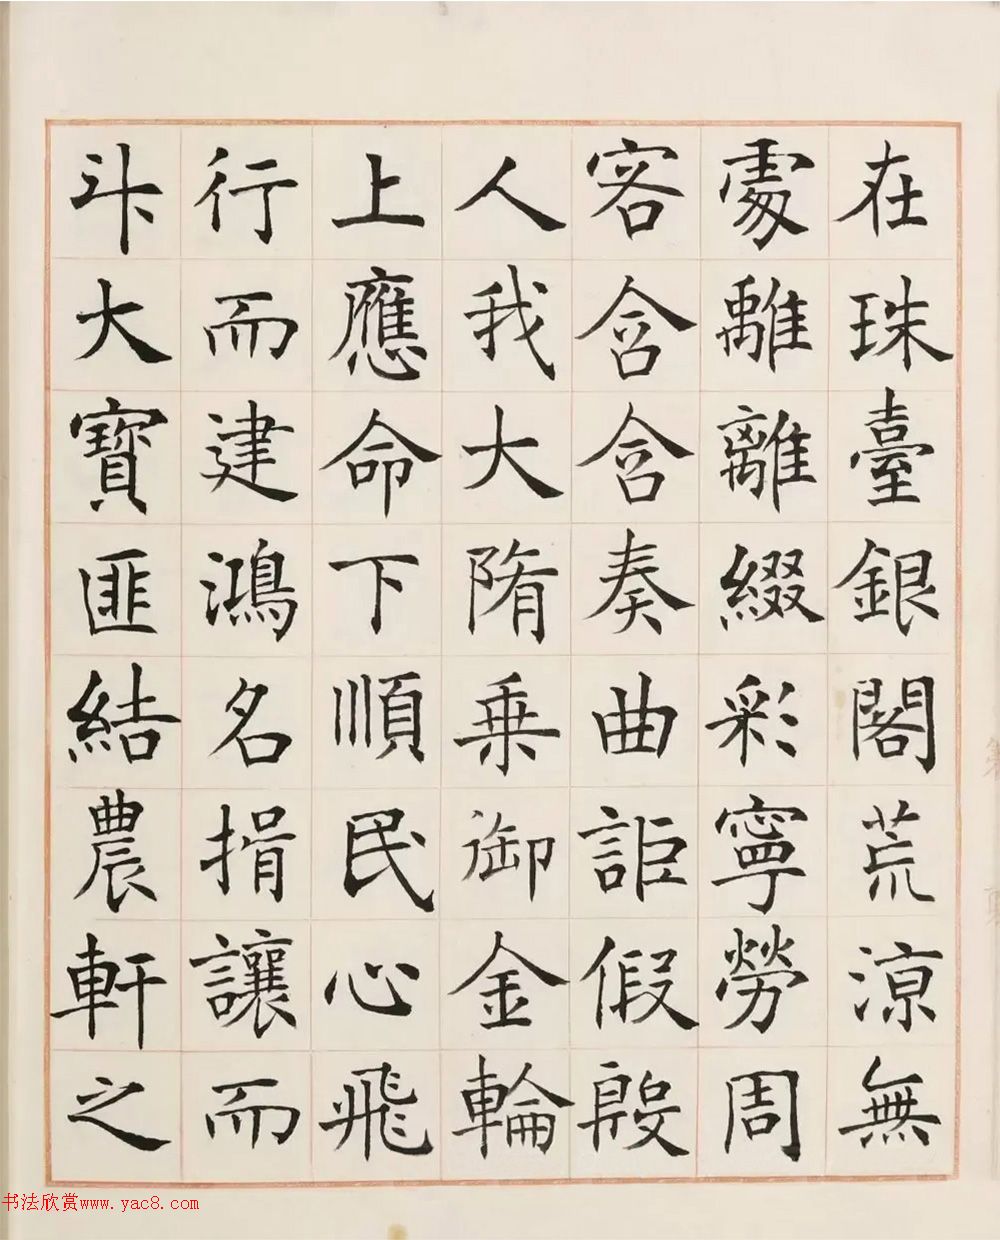 在珠臺銀閣荒涼無
處離離綴彩寧勞周
客含含奏曲詎假殷
人我大隋乗御金輪
上應命下順民心飛
行而建鴻名揖讓而
斗大寶匪結農軒之
书法欣赏www.yac8.com